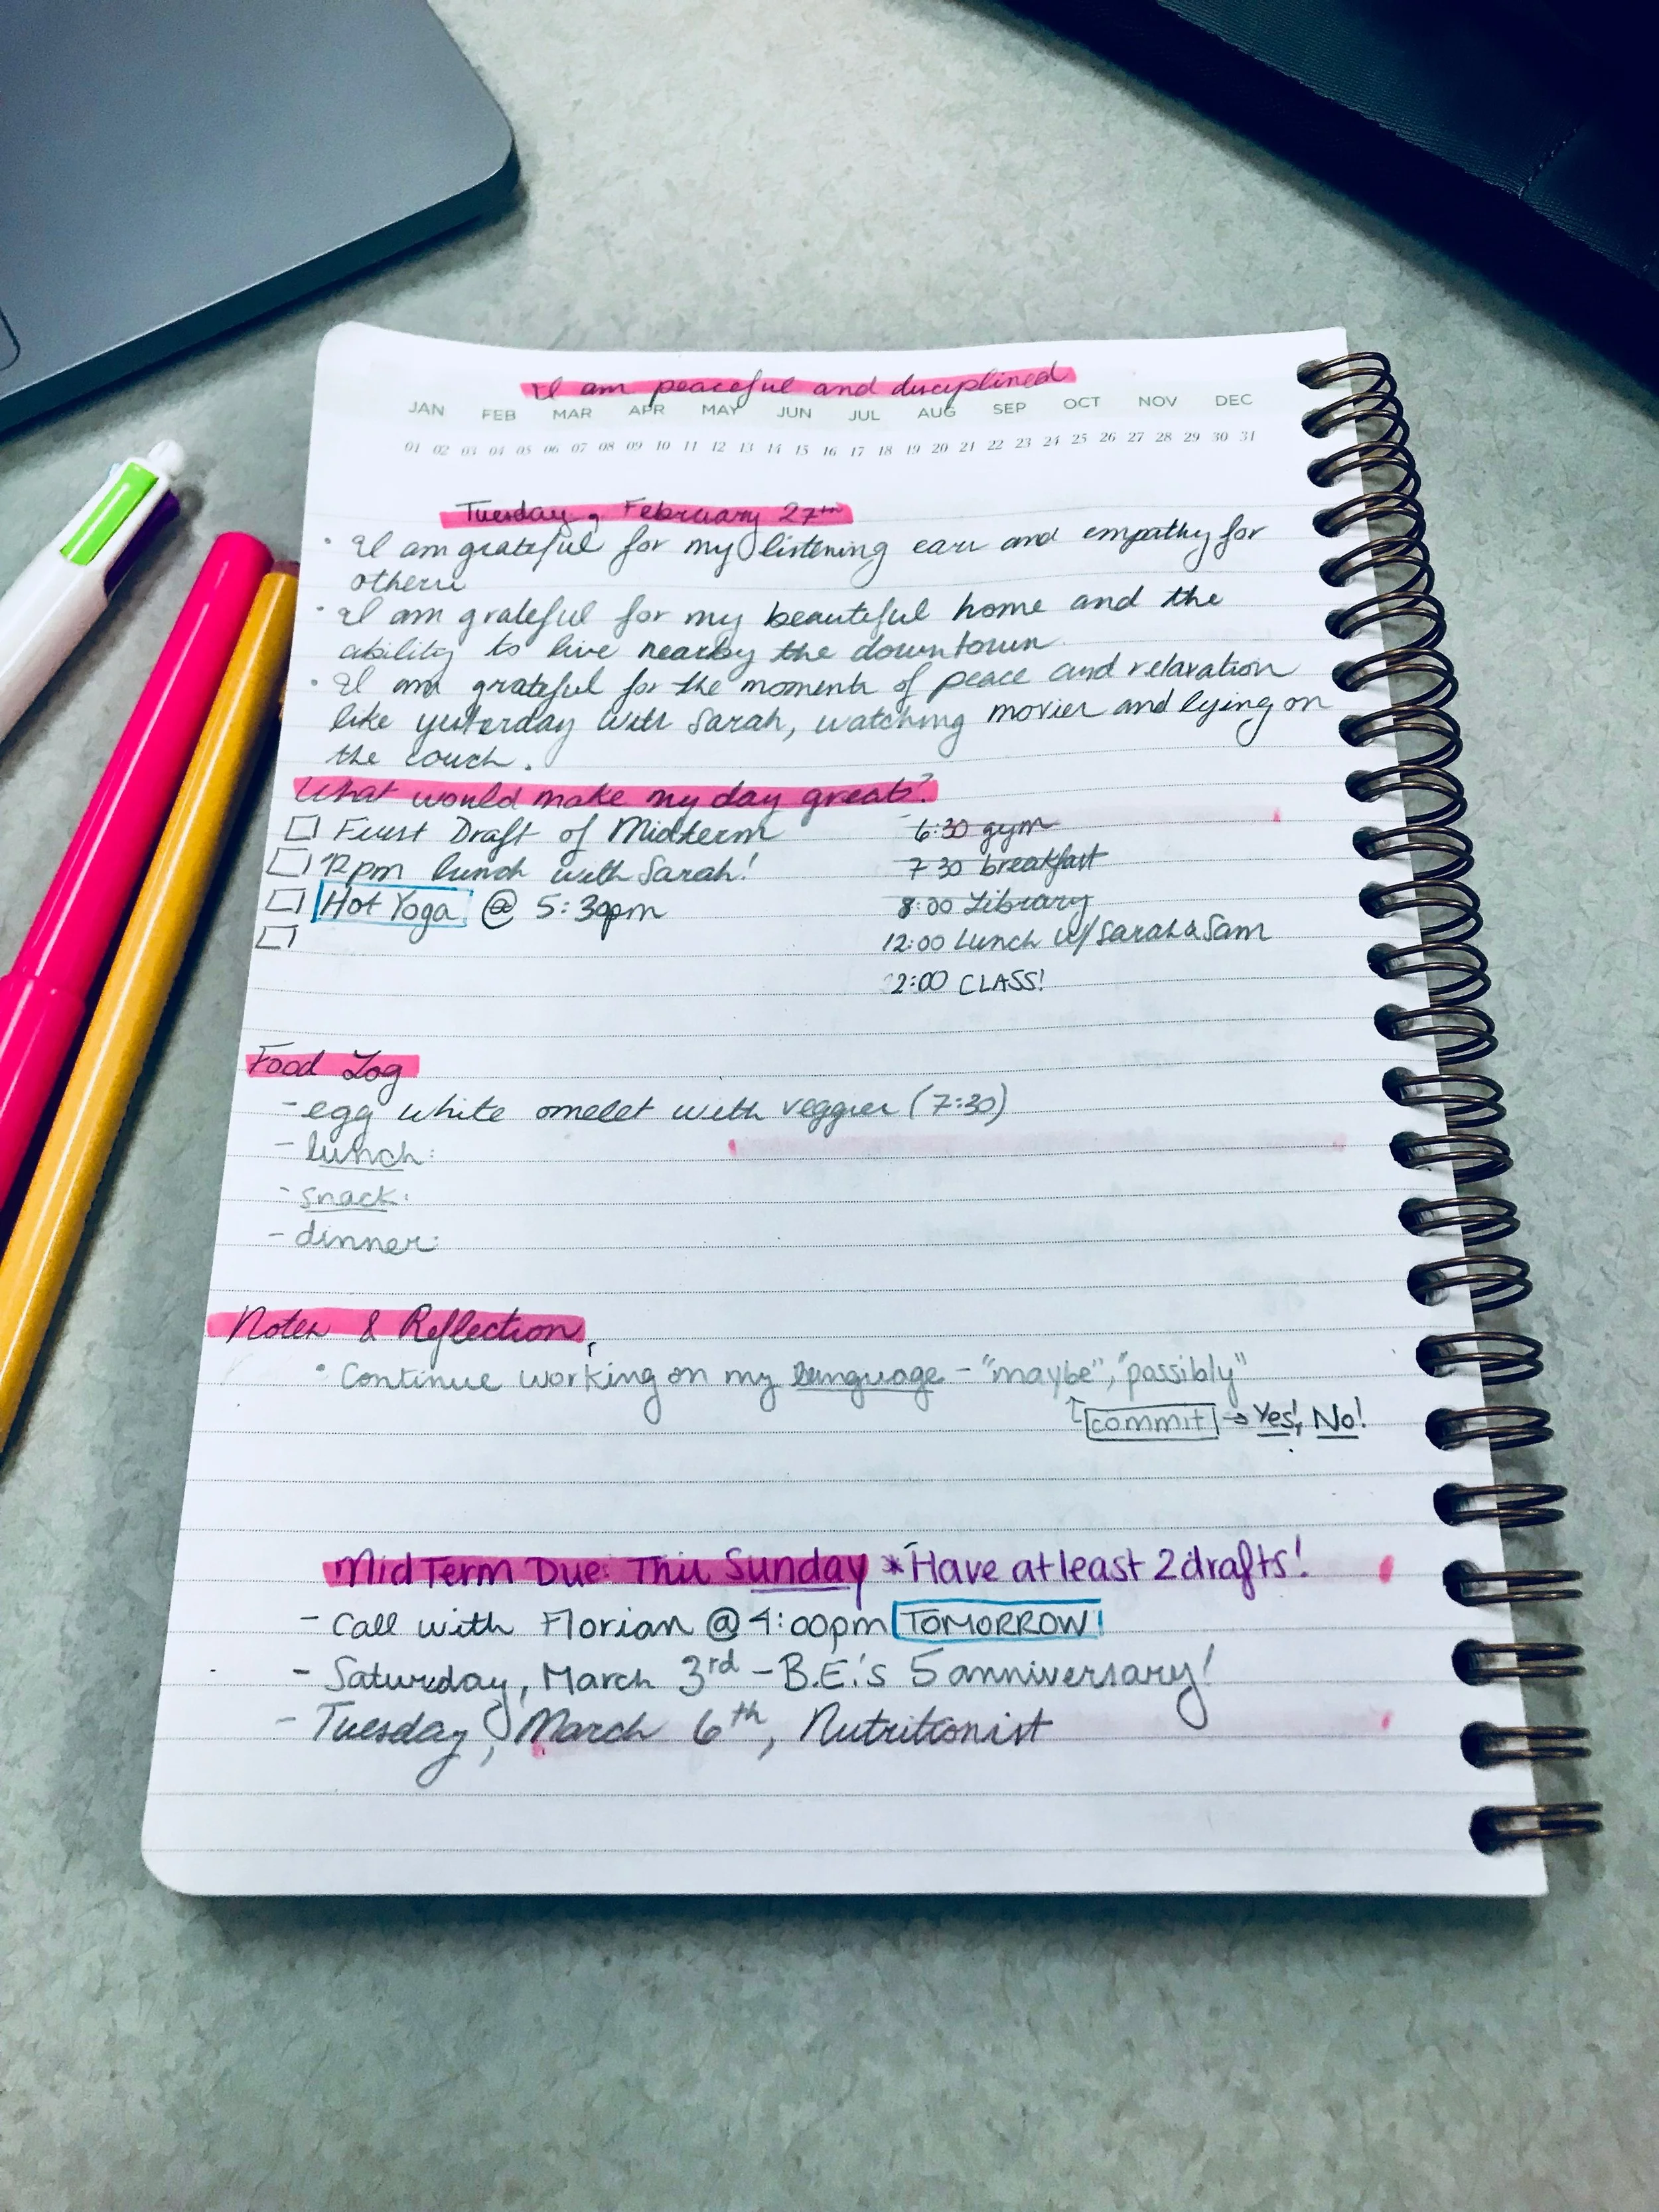 I am peaceful and disciplined
JAN FEB MAR APR MAY JUN JUL AUG SEP OCT NOV DEC
01 02 03 04 05 06 07 08 09 10 11 12 13 14 15 16 17 18 19 20 21 22 23 24 25 26 27 28 29 30 31
Tuesday, February 27th
• I am grateful for my listening ears and empathy for
others
• I am grateful for my beautiful home and the
ability to live nearby the downtown.
• I am grateful for the moments of peace and relaxation
like yesterday with Sarah, watching movies and lying on
the couch.
What would make my day great?
First Draft of Midterm
12pm lunch with Sarah!
Hot Yoga @ 5:30pm
6:30 gym
7:30 breakfast
8:00 Library
12:00 Lunch w/ Sarah & Sam
2:00 CLASS!
Food Log
- egg white omelet with veggies (7:30)
- lunch:
- snack:
- dinner:
Notes & Reflection
• Continue working on my language - "maybe", "possibly"
commit → Yes!, No!
MidTerm Due: This Sunday *Have at least 2 drafts!
- Call with Florian @ 4:00pm TOMORROW!
- Saturday, March 3rd - B.E.'s 5 anniversary!
- Tuesday, March 6th, Nutritionist